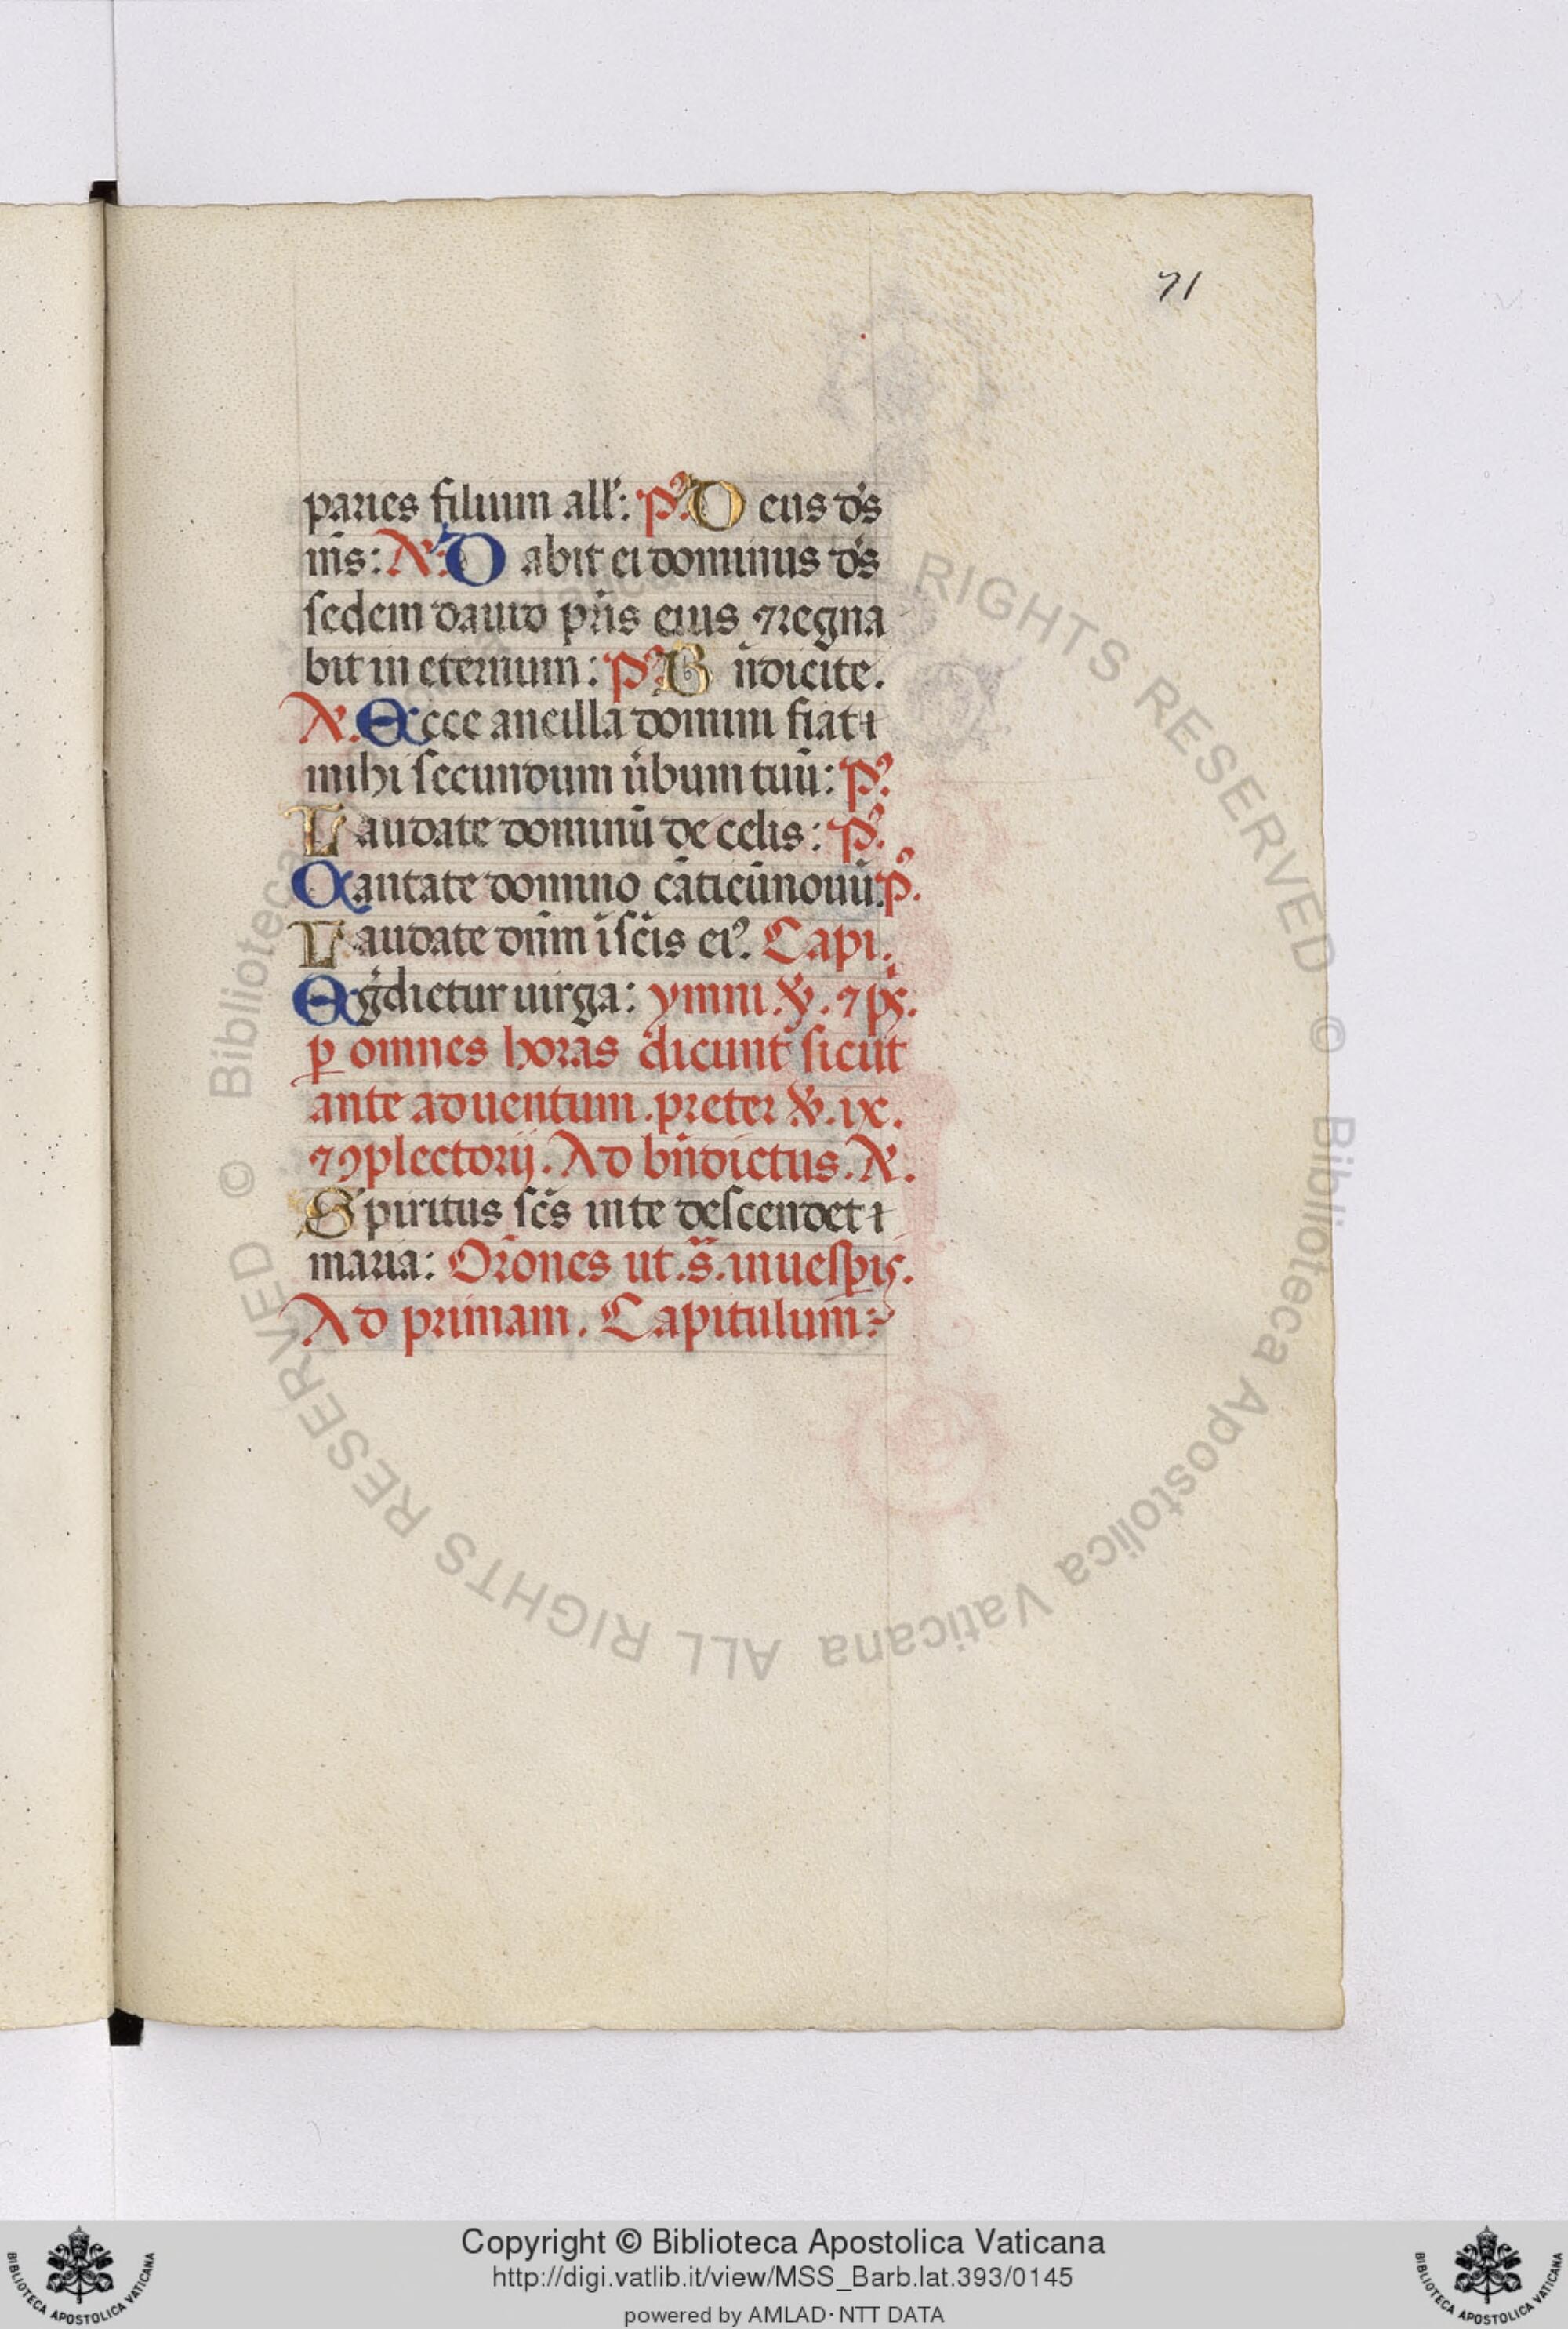 71
paries filium all': p̄s. D eus d's
n̄s: A. D abit ei dominus d's
sedem dauid pr̄is eius ⁊ regna
bit in eternum: p̄s. B n̄dicite.
A. Ecce ancilla domini fiat
mihi secundum u̍bum tuū: p̄s.
Laudate dominū de celis: p̄s.
Cantate domino cāticū nouū: p̄s.
Laudate dn̄m ī sc̄is eiꝰ. Capi.
Egͥdietur uirga: ymni. ꝟ. ⁊ p̄s.
ꝑ omnes horas dicunt̃ sicut
ante aduentum. preter ꝟ. ix.
⁊ ꝯplectorij. Ad bn̄dictus. A.
Spiritus sc̄s in te descendet
maria: Or̄ones ut. s̄. in uesꝑis.
Ad primam. Capitulum:
© Biblioteca Apostolica Vaticana ALL RIGHTS RESERVED
© Biblioteca Apostolica Vaticana ALL RIGHTS RESERVED
Copyright © Biblioteca Apostolica Vaticana
http://digi.vatlib.it/view/MSS_Barb.lat.393/0145
powered by AMLAD·NTT DATA
BIBLIOTECA APOSTOLICA VATICANA
BIBLIOTECA APOSTOLICA VATICANA